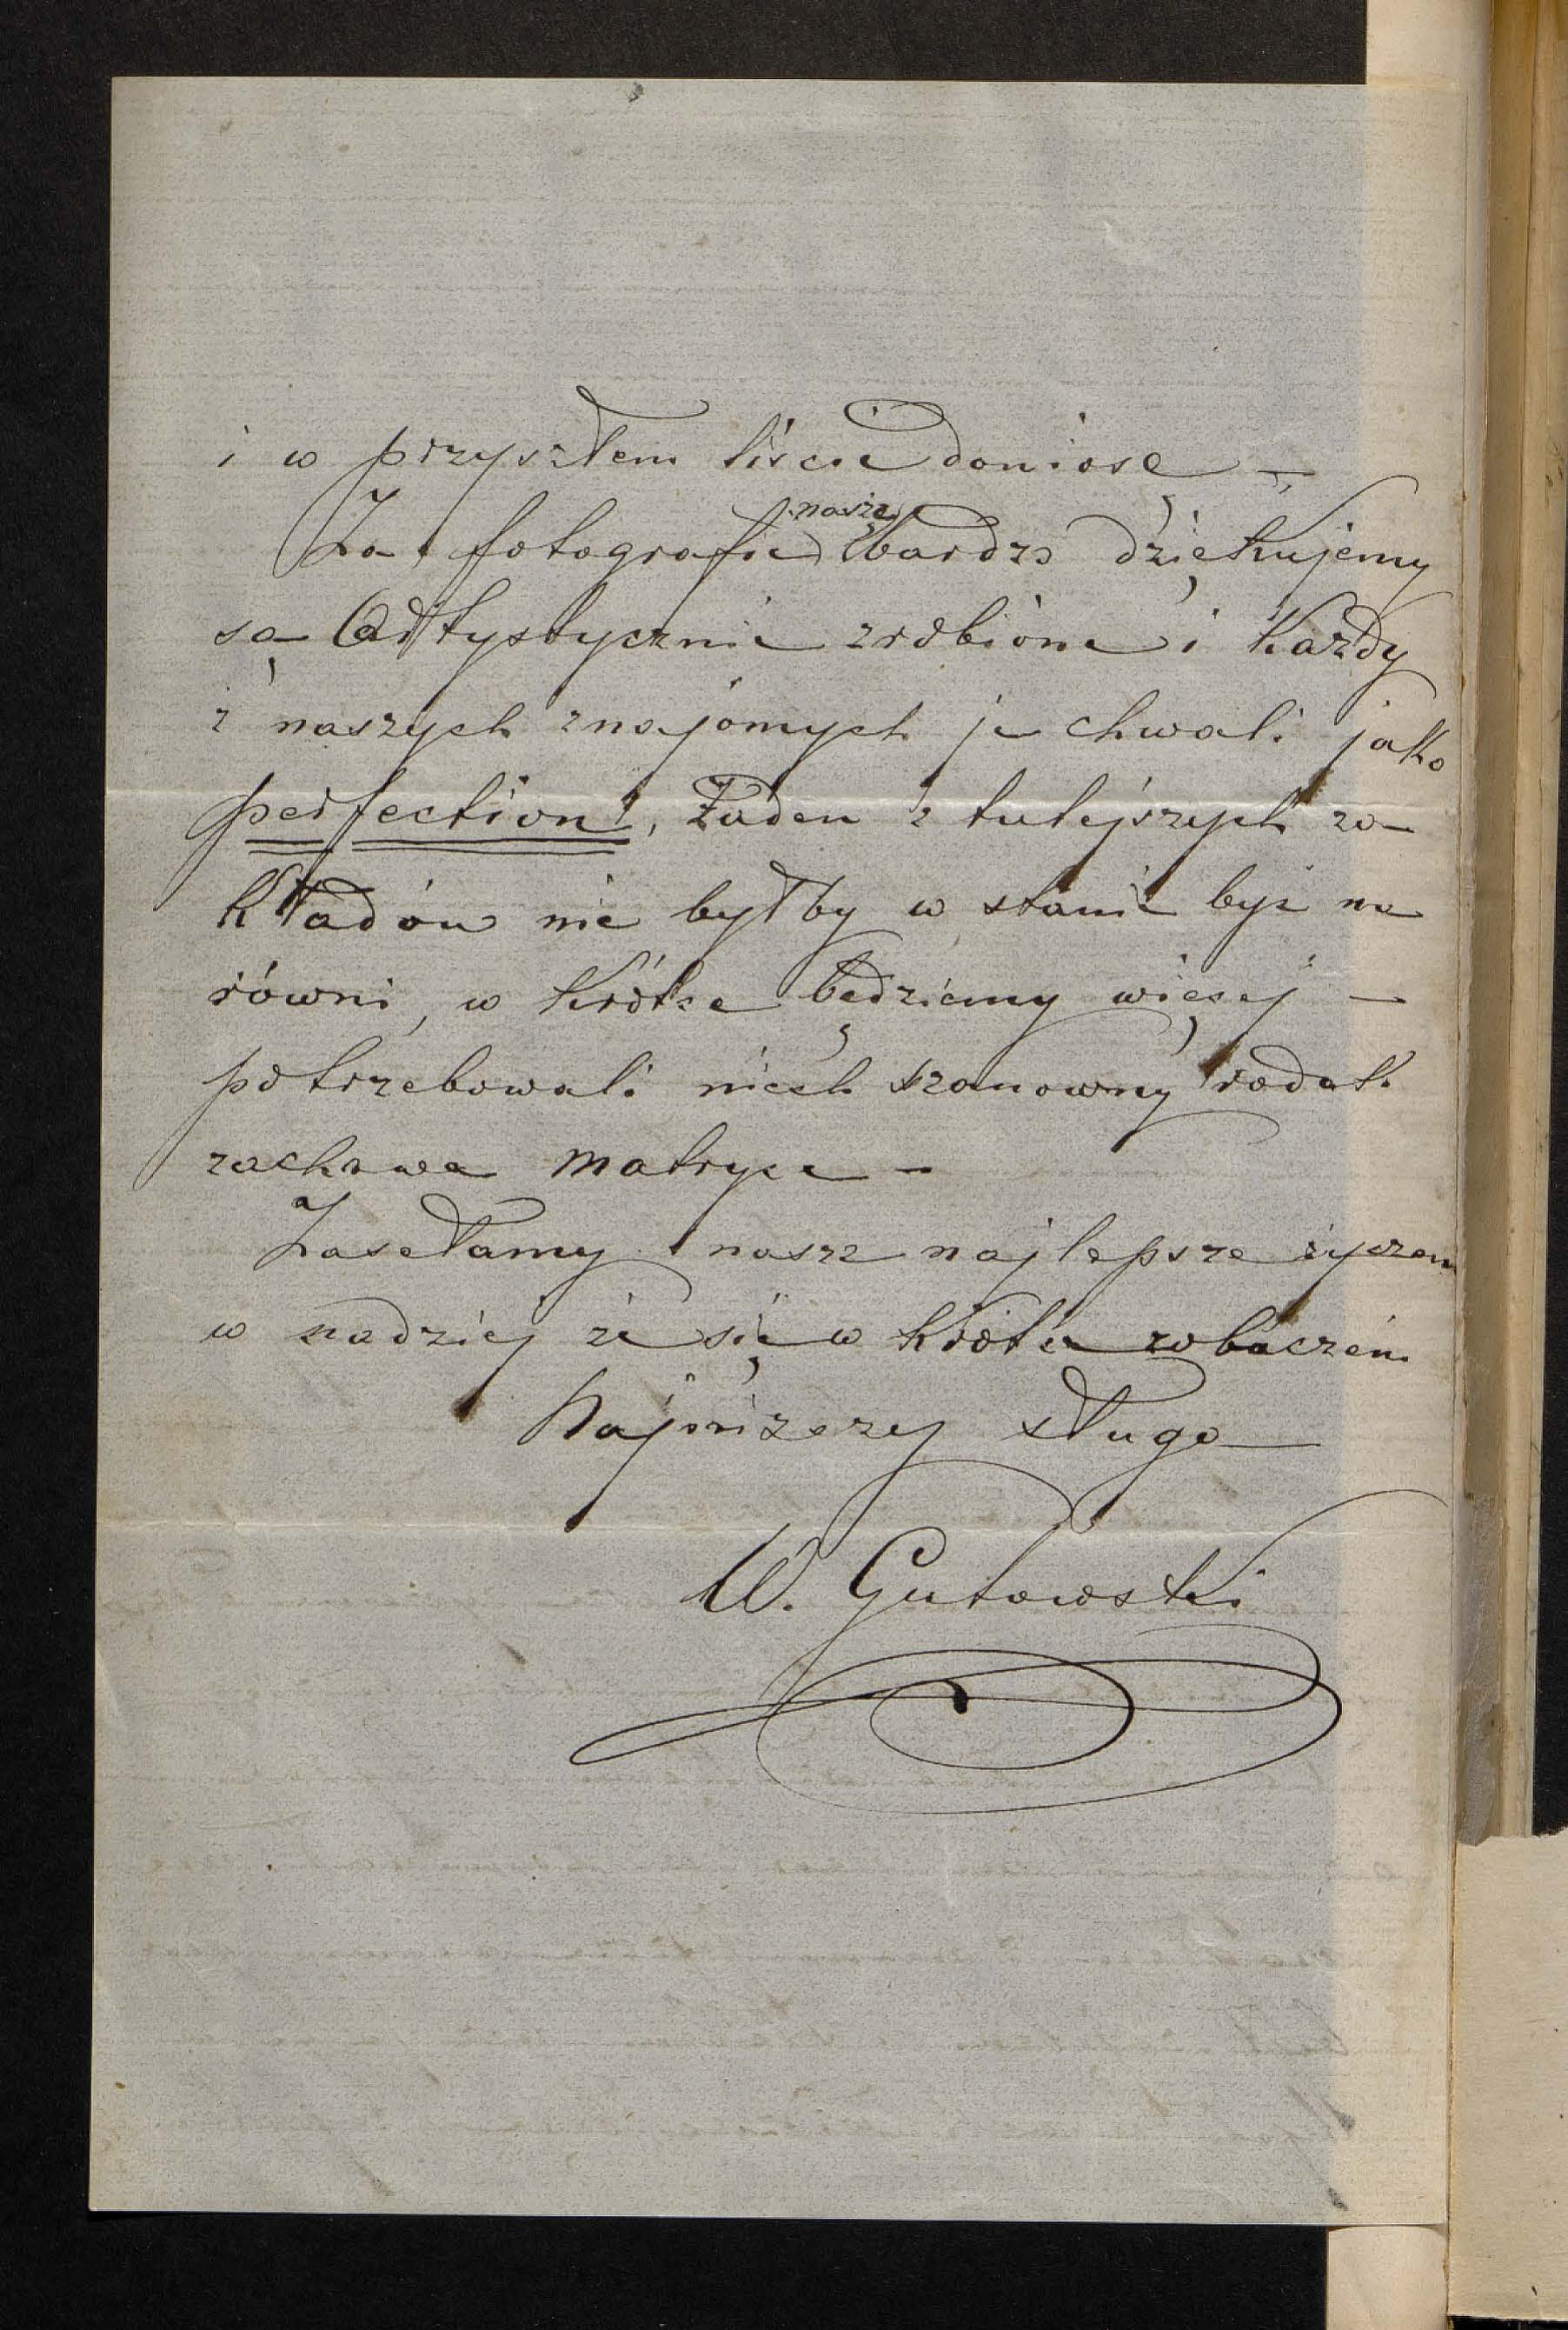 i w przyszłem liście doniosę —
Za fotografie nasze bardzo dziękujemy
są Artystycznie zrobione i Każdy
z naszych znajomych je chwali jako
perfection!, Żaden z tutejszych za-
kładów nie byłby w stanie być na
równi, w krótce będziemy więcej —
potrzebowali niech szanowny rodak
zachowa matryce —
Zasełamy nasze najlepsze życzen
w nadziej że się w krótce zobaczem
Najniższy sługa
W. Gutowski